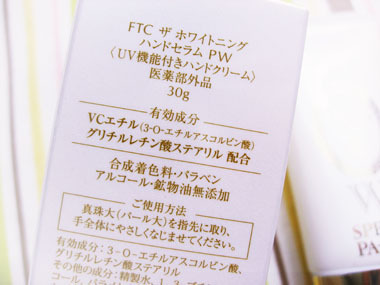 FTC ザ ホワイトニング
ハンドセラム PW
〈UV機能付きハンドクリーム〉
医薬部外品
30g
有効成分
VCエチル(3-O-エチルアスコルビン酸)
グリチルレチン酸ステアリル 配合
合成着色料・パラベン
アルコール・鉱物油無添加
ご使用方法
真珠大(パール大)を指先に取り、
手全体にやさしくなじませてください。
有効成分:3-O-エチルアスコルビン酸、
グリチルレチン酸ステアリル
その他の成分:精製水、1、3-ブチ
コール、パラメ
SPE
PA